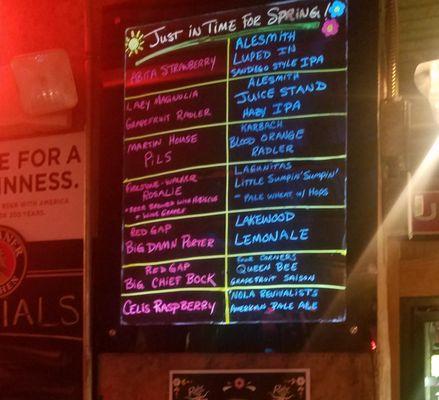 Just in Time for Spring!
Abita Strawberry
Lazy Magnolia
Grapefruit Radler
Martin House
Pils
Firestone-Walker
Rosalie
- Beer Brewed with Hibiscus
+ Wine Grapes
Red Gap
Big Damn Porter
Red Gap
Big Chief Bock
Celis Raspberry
Alesmith
Luped In
Sandiego Style IPA
Alesmith
Juice Stand
Hazy IPA
Karbach
Blood Orange
Radler
Lagunitas
Little Sumpin' Sumpin'
- Pale Wheat w/ Hops
Lakewood
Lemonale
Four Corners
Queen Bee
Grapefruit Saison
Nola Revivalists
American Pale Ale
E FOR A
NNESS.